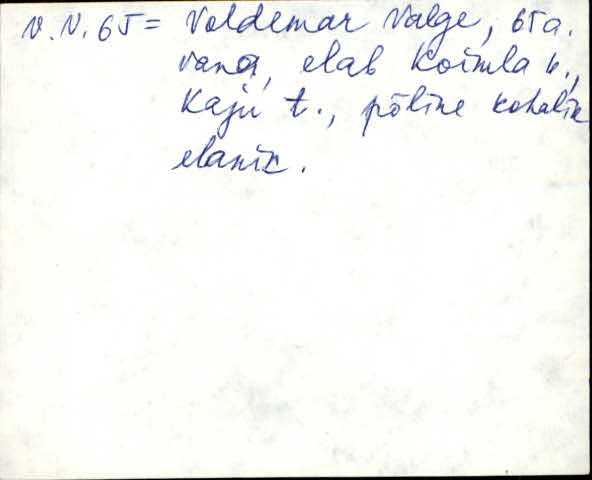 V.V. 65 = Voldemar Valge, 65 a.
vana, elab Koimla k.,
Kaju t., põline kohalik
elanik.